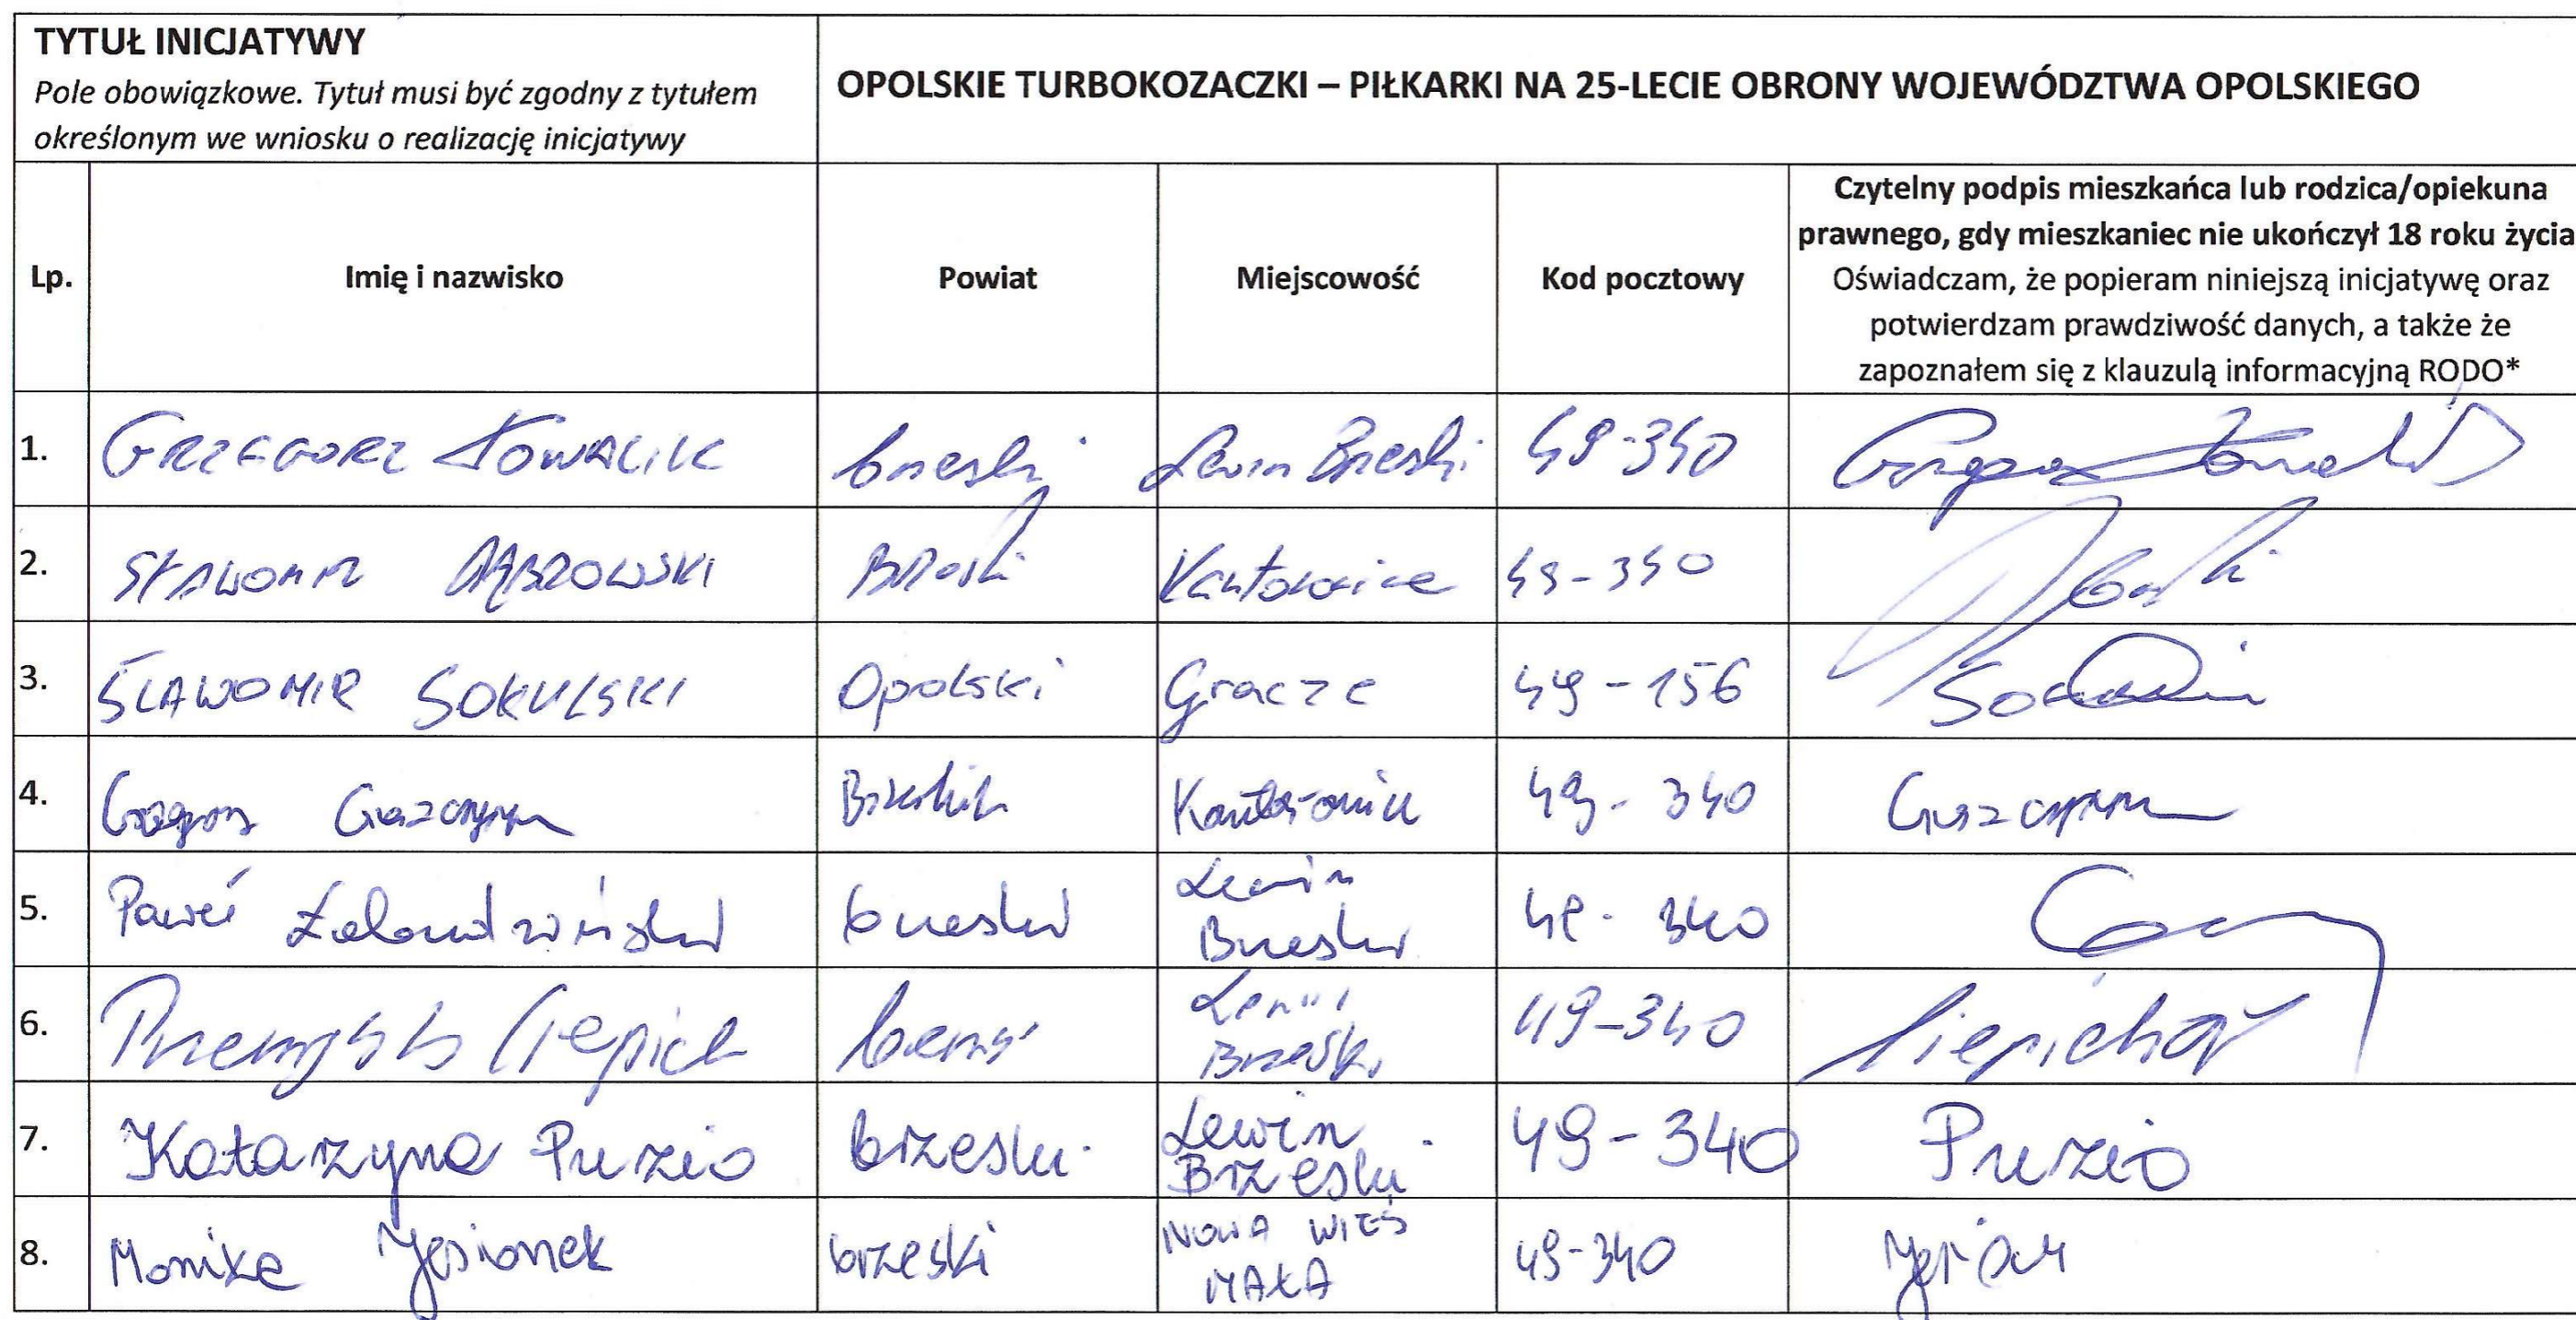 TYTUŁ INICJATYWY
Pole obowiązkowe. Tytuł musi być zgodny z tytułem
określonym we wniosku o realizację inicjatywy
OPOLSKIE TURBOKOZACZKI – PIŁKARKI NA 25-LECIE OBRONY WOJEWÓDZTWA OPOLSKIEGO
Lp.
Imię i nazwisko
Powiat
Miejscowość
Kod pocztowy
Czytelny podpis mieszkańca lub rodzica/opiekuna
prawnego, gdy mieszkaniec nie ukończył 18 roku życia
Oświadczam, że popieram niniejszą inicjatywę oraz
potwierdzam prawdziwość danych, a także że
zapoznałem się z klauzulą informacyjną RODO*
1. GRZEGORZ KOWALIK brzeski Lewin Brzeski 49-340
2. SŁAWOMIR DĄBROWSKI Brzeski Kantorowice 49-340
3. SŁAWOMIR SOKULSKI Opolski Gracze 49-156
4. Grzegorz Brzeski 49-340
5. Paweł brzeski Lewin
Brzeski 49-340
6. Przemysław Lewin
Brzeski 49-340
7. Katarzyna Puzio brzeski Lewin
Brzeski 49-340 Puzio
8. Monika Jesionek brzeski NOWA WIEŚ
MAŁA 49-340